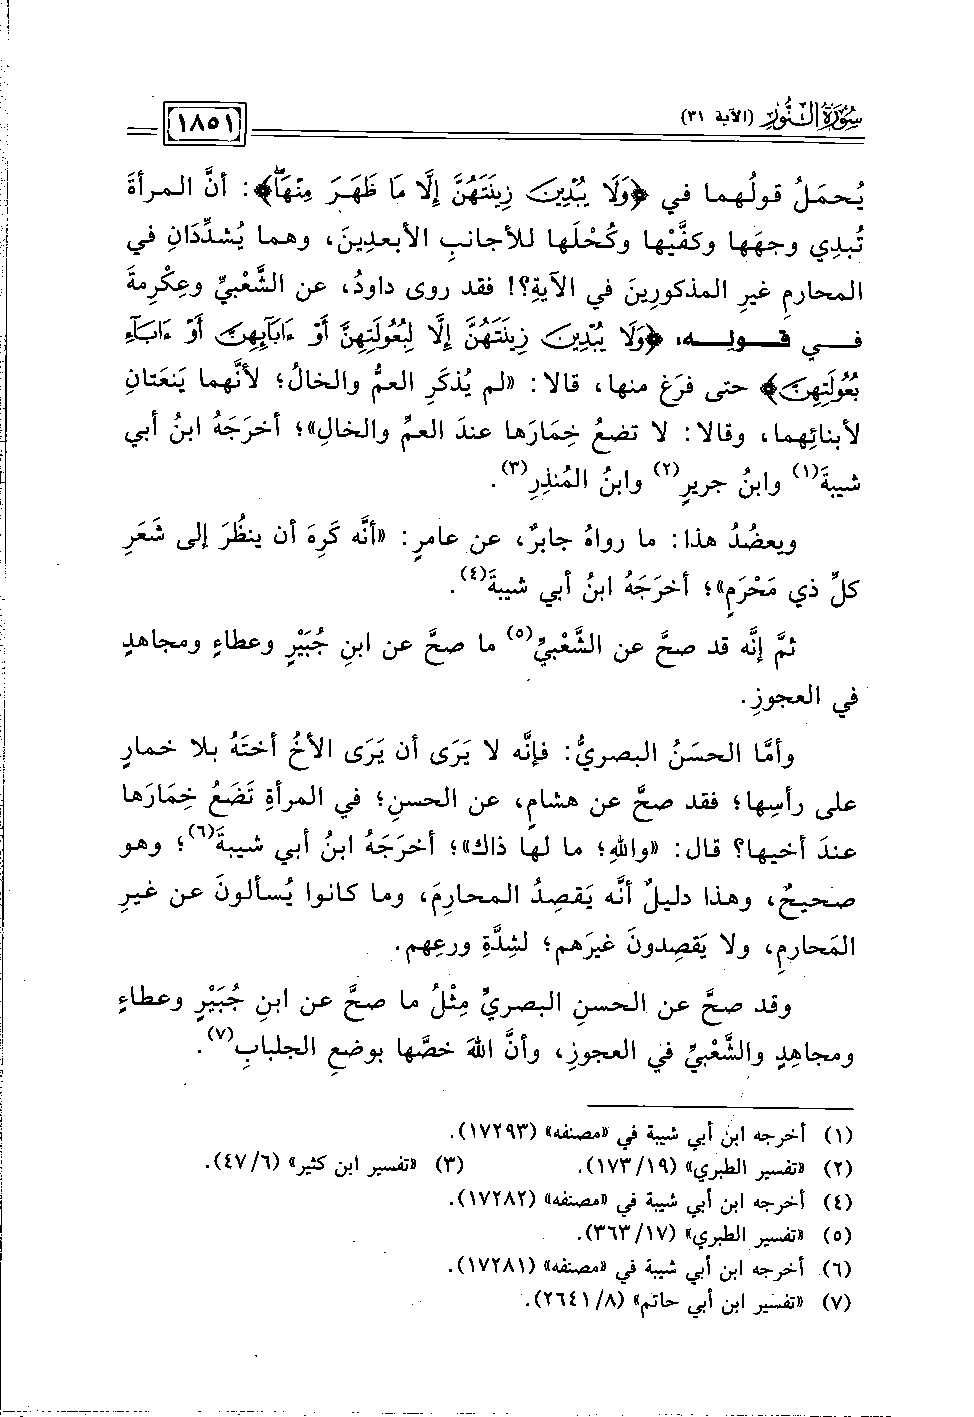 سُورَةُ النُّورِ (الآية ٣١)
١٨٥١
يُحمَلُ قولُهما في ﴿وَلَا يُبْدِينَ زِينَتَهُنَّ إِلَّا مَا ظَهَرَ مِنْهَا﴾: أنَّ المرأةَ
تُبدِي وجهَها وكفَّيْها وكُحْلَها للأجانبِ الأبعدِينَ، وهما يُشدِّدَانِ في
المحارمِ غيرِ المذكورِينَ في الآيةِ؟! فقد روى داودُ، عن الشَّعْبيِّ وعِكْرِمةَ
في قوله: ﴿وَلَا يُبْدِينَ زِينَتَهُنَّ إِلَّا لِبُعُولَتِهِنَّ أَوْ ءَابَآئِهِنَّ أَوْ ءَابَآءِ
بُعُولَتِهِنَّ﴾ حتى فرَغ منها، قالا: «لم يُذكَرِ العمُّ والخالُ؛ لأنَّهما يَنعَتانِ
لأبنائِهما، وقالا: لا تضعُ خِمَارَها عندَ العمِّ والخالِ»؛ أخرَجَهُ ابنُ أبي
شيبةَ(١) وابنُ جريرٍ(٢) وابنُ المُنذِرِ(٣).
ويعضُدُ هذا: ما رواهُ جابرٌ، عن عامرٍ: «أنَّه كَرِهَ أن ينظُرَ إلى شَعَرِ
كلِّ ذي مَحْرَمٍ»؛ أخرَجَهُ ابنُ أبي شيبةَ(٤).
ثمَّ إنَّه قد صحَّ عن الشَّعْبيِّ(٥) ما صحَّ عن ابنِ جُبَيْرٍ وعطاءٍ ومجاهدٍ
في العجوزِ.
وأمَّا الحسَنُ البصريُّ: فإنَّه لا يَرَى أن يَرَى الأخُ أختَهُ بلا خمارٍ
على رأسِها؛ فقد صحَّ عن هشامٍ، عن الحسنِ؛ في المرأةِ تَضَعُ خِمَارَها
عندَ أخيها؟ قال: «واللهِ؛ ما لها ذاك»؛ أخرَجَهُ ابنُ أبي شيبةَ(٦)؛ وهو
صحيحٌ، وهذا دليلٌ أنَّه يَقصِدُ المحارِمَ، وما كانوا يُسألونَ عن غيرِ
المَحارِمِ، ولا يَقصِدونَ غيرَهم؛ لشِدَّةِ ورعِهم.
وقد صحَّ عن الحسنِ البصريِّ مِثْلُ ما صحَّ عن ابنِ جُبَيْرٍ وعطاءٍ
ومجاهدٍ والشَّعْبيِّ في العجوزِ، وأنَّ اللهَ خصَّها بوضعِ الجلبابِ(٧).
(١) أخرجه ابن أبي شيبة في «مصنفه» (١٧٢٩٣).
(٢) «تفسير الطبري» (١٩/ ١٧٣). (٣) «تفسير ابن كثير» (٦/ ٤٧).
(٤) أخرجه ابن أبي شيبة في «مصنفه» (١٧٢٨٢).
(٥) «تفسير الطبري» (١٧/ ٣٦٣).
(٦) أخرجه ابن أبي شيبة في «مصنفه» (١٧٢٨١).
(٧) «تفسير ابن أبي حاتم» (٨/ ٢٦٤١).